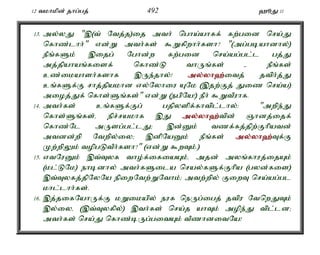 12 வமாமின் தாப்பத் 492 ஹூது 11
13. அல்லது "இ(வ் வேத்த)தை அவர் பொய்யாகக் கற்பனை செய்து
கொண்டார்" என்று அவர்கள் கூறுகிறார்களா? "(அப்படியானால்)
நீங்களும் இதைப் போன்ற கற்பனை செய்யப்பட்ட பத்து
அத்தியாயங்களைக் கொண்டு வாருங்கள் - நீங்கள்
உண்மையாளர்களாக இருந்தால்! அல்லாஹ்வைத் தவிர்த்து
உங்களுக்கு சாத்தியமான எல்லோரையுமே (இதற்குத் துணை செய்ய)
அழைத்துக் கொள்ளுங்கள்" என்று (நபியே!) நீர் கூறுவீராக.
14. அவர்கள் உங்களுக்குப் பதிலளிக்காவிட்டால்: "அறிந்து
கொள்ளுங்கள், நிச்சயமாக இது அல்லாஹ்வின் ஞானத்தைக்
கொண்டே அருளப்பட்டது; இன்னும் வணக்கத்திற்குரியவன்
அவனன்றி வேறில்லை; இனியேனும் நீங்கள் அல்லாஹ்வுக்கு
முற்றிலும் வழிபடுவீர்களா?" (என்று கூறவும்.)
15. எவரேனும் இவ்வுலக வாழ்க்கையையும், அதன் அலங்காரத்தையும்
(மட்டுமே) நாடினால் அவர்களுடைய செயல்களுக்குரிய (பலன்களை)
இவ்வுலகத்திலேயே நிறைவேற்றுவோம்; அவற்றில் குறைவு செய்யப்பட
மாட்டார்கள்.
16. இத்தகையோருக்கு மறுமையில் நரக நெருப்பைத் தவிர வேறெதுவும்
இல்லை, (இவ்வுலகில்) இவர்கள் செய்த யாவும் அழிந்து விட்டன;
அவர்கள் செய்து கொண்டிருப்பவையும் வீணானவையே!